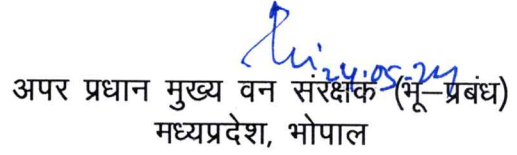 24.05.24
अपर प्रधान मुख्य वन संरक्षक (भू–प्रबंध)
मध्यप्रदेश, भोपाल